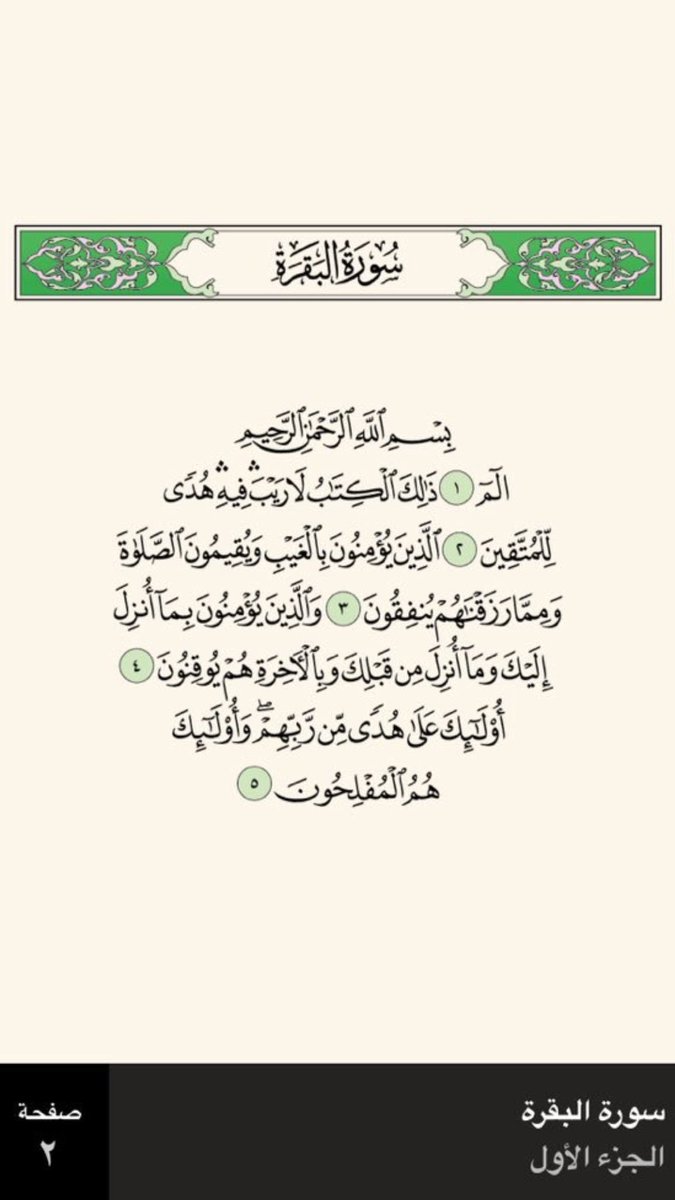 سُورَةُ البَقَرَةِ
بِسْمِ ٱللَّهِ ٱلرَّحْمَٰنِ ٱلرَّحِيمِ
الٓمٓ ١ ذَٰلِكَ ٱلْكِتَٰبُ لَا رَيْبَ ۛ فِيهِ ۛ هُدًى
لِّلْمُتَّقِينَ ٢ ٱلَّذِينَ يُؤْمِنُونَ بِٱلْغَيْبِ وَيُقِيمُونَ ٱلصَّلَوٰةَ
وَمِمَّا رَزَقْنَٰهُمْ يُنفِقُونَ ٣ وَٱلَّذِينَ يُؤْمِنُونَ بِمَآ أُنزِلَ
إِلَيْكَ وَمَآ أُنزِلَ مِن قَبْلِكَ وَبِٱلْءَاخِرَةِ هُمْ يُوقِنُونَ ٤
أُو۟لَٰٓئِكَ عَلَىٰ هُدًى مِّن رَّبِّهِمْ ۖ وَأُو۟لَٰٓئِكَ
هُمُ ٱلْمُفْلِحُونَ ٥
سورة البقرة
الجزء الأول
صفحة
٢